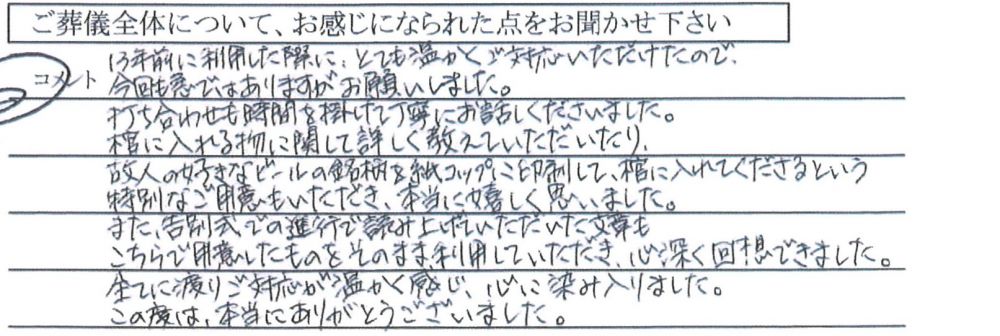 ご葬儀全体について、お感じになられた点をお聞かせ下さい
コメント
13年前に利用した際に、とても温かくご対応いただけたので、
今回も急ではありますがお願いしました。
打ち合わせも時間を掛けて丁寧にお話しくださいました。
棺に入れる物に関して詳しく教えていただいたり、
故人の好きなビールの銘柄を紙コップに印刷して、棺に入れてくださるという
特別なご用意もいただき、本当に嬉しく思いました。
また、告別式での進行で読み上げていただいた文章も
こちらで用意したものをそのまま利用していただき、心深く回想できました。
全てに渡りご対応が温かく感じ、心に染み入りました。
この度は、本当にありがとうございました。